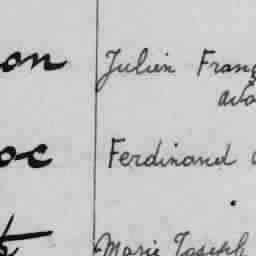 on Julien Franç
avo
oc Ferdinand
Marie Joseph